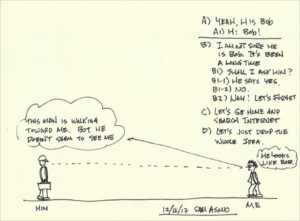 A) YEAH, H IS BOB
A1) H: BOB!
B) I AM NOT SURE HE
IS BOB. IT'S BEEN
A LONG TIME
B1) SHALL I ASK HIM?
B1-1) HE SAYS YES
B1-2) NO.
B2) NAH! LET'S FORGET
C) LET'S GO HOME AND
SEARCH INTERNET
D) LET'S JUST DROP THE
WHOLE IDEA.
THIS MAN IS WALKING
TOWARD ME, BUT HE
DOESN'T SEEM TO SEE ME
HE LOOKS
LIKE BOB
HIM
12/12/17 SAKI ASANO
ME